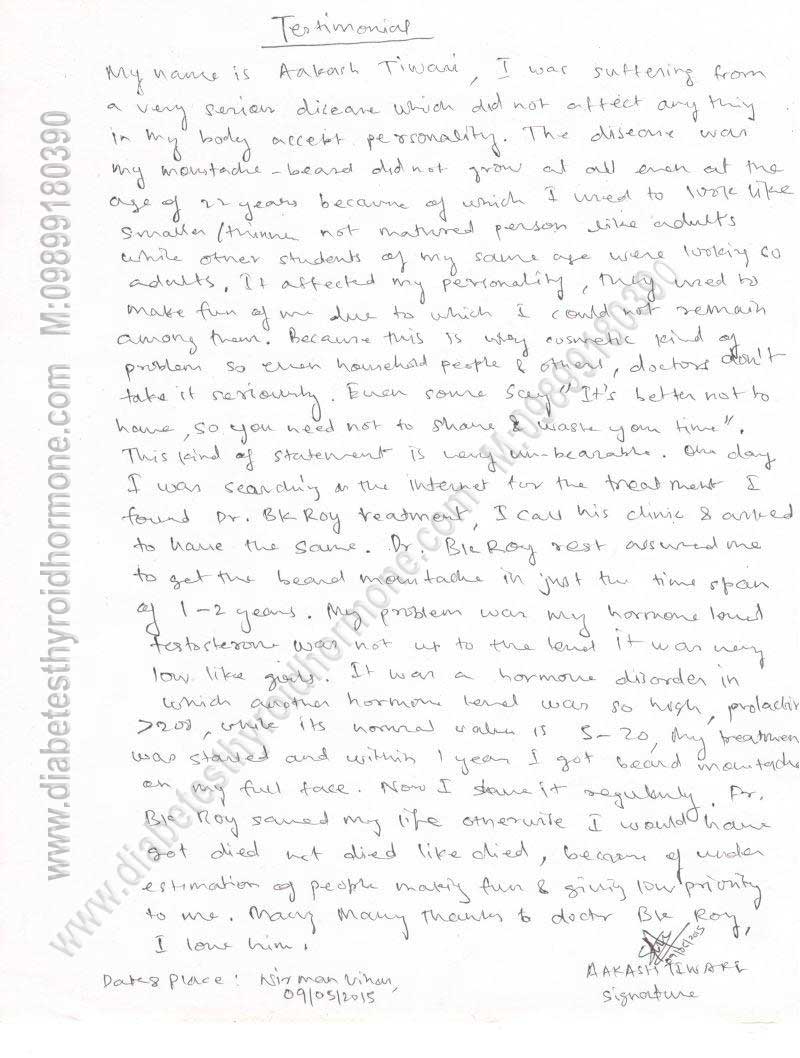 Testimonial
My name is Aakash Tiwari, I was suffering from
a very serious disease which did not affect any thing
in my body accept personality. The disease was
my moustache-beard did not grow at all even at the
age of 22 years because of which I used to look like
smaller/thinner not matured person like adults
while other students of my same age were looking so
adults. It affected my personality, they used to
make fun of me due to which I could not remain
among them. Because this is very cosmetic kind of
problem so even household people & others, doctors don't
take it seriously. Even some say "It's better not to
have, so you need not to shave & waste your time".
This kind of statement is very un-bearable. One day
I was searching on the internet for the treatment I
found Dr. BK Roy treatment, I call his clinic & asked
to have the same. Dr. BK Roy rest assured me
to get the beard moustache in just the time span
of 1-2 years. My problem was my hormone level
testosterone was not up to the level it was very
low like girls. It was a hormone disorder in
which another hormone level was so high, prolactin
>200, while its normal value is 5-20, My treatment
was started and within 1 year I got beard moustache
on my full face. Now I shave it regularly. Dr.
BK Roy saved my life otherwise I would have
got died not died like died, because of under
estimation of people making fun & giving low priority
to me. Many Many thanks to doctor BK Roy,
I love him.
09/05/2015
AAKASH TIWARI
Signature
Date & Place: Nirman Vihar,
09/05/2015
www.diabetesthyroidhormone.com M:09899180390
www.diabetesthyroidhormone.com M:09899180390